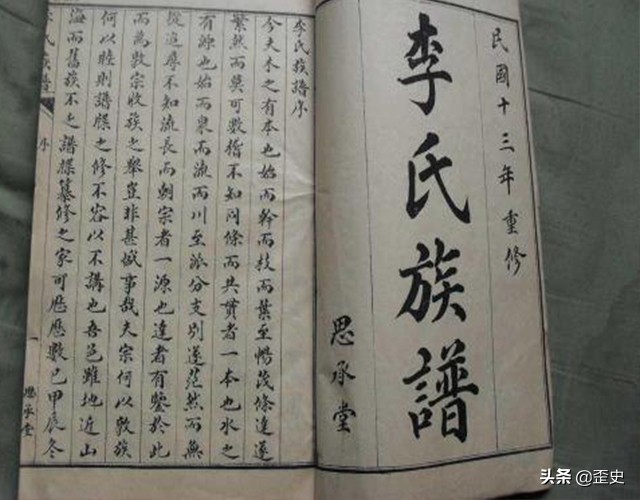 民國十三年重修
李氏族譜
思承堂
李氏族譜序
今夫木之有本也始而幹而枝而葉至暢茂條達遂
繁然而莫可數指不知同條而共貫者一本也水之
有源也始而泉而流而川至派分支別遂茫然而無
從追尋不知流長而朝宗者一源也達者有鑒於此
而為敬宗收族之舉豈非甚盛事哉夫宗何以敬族
何以睦則譜牒之修不容以不講也吾邑雖地近山
海而舊族不乏譜牒纂修之家可歷歷數已甲辰冬
李氏族譜
序
一
思承堂
頭条 @歪史